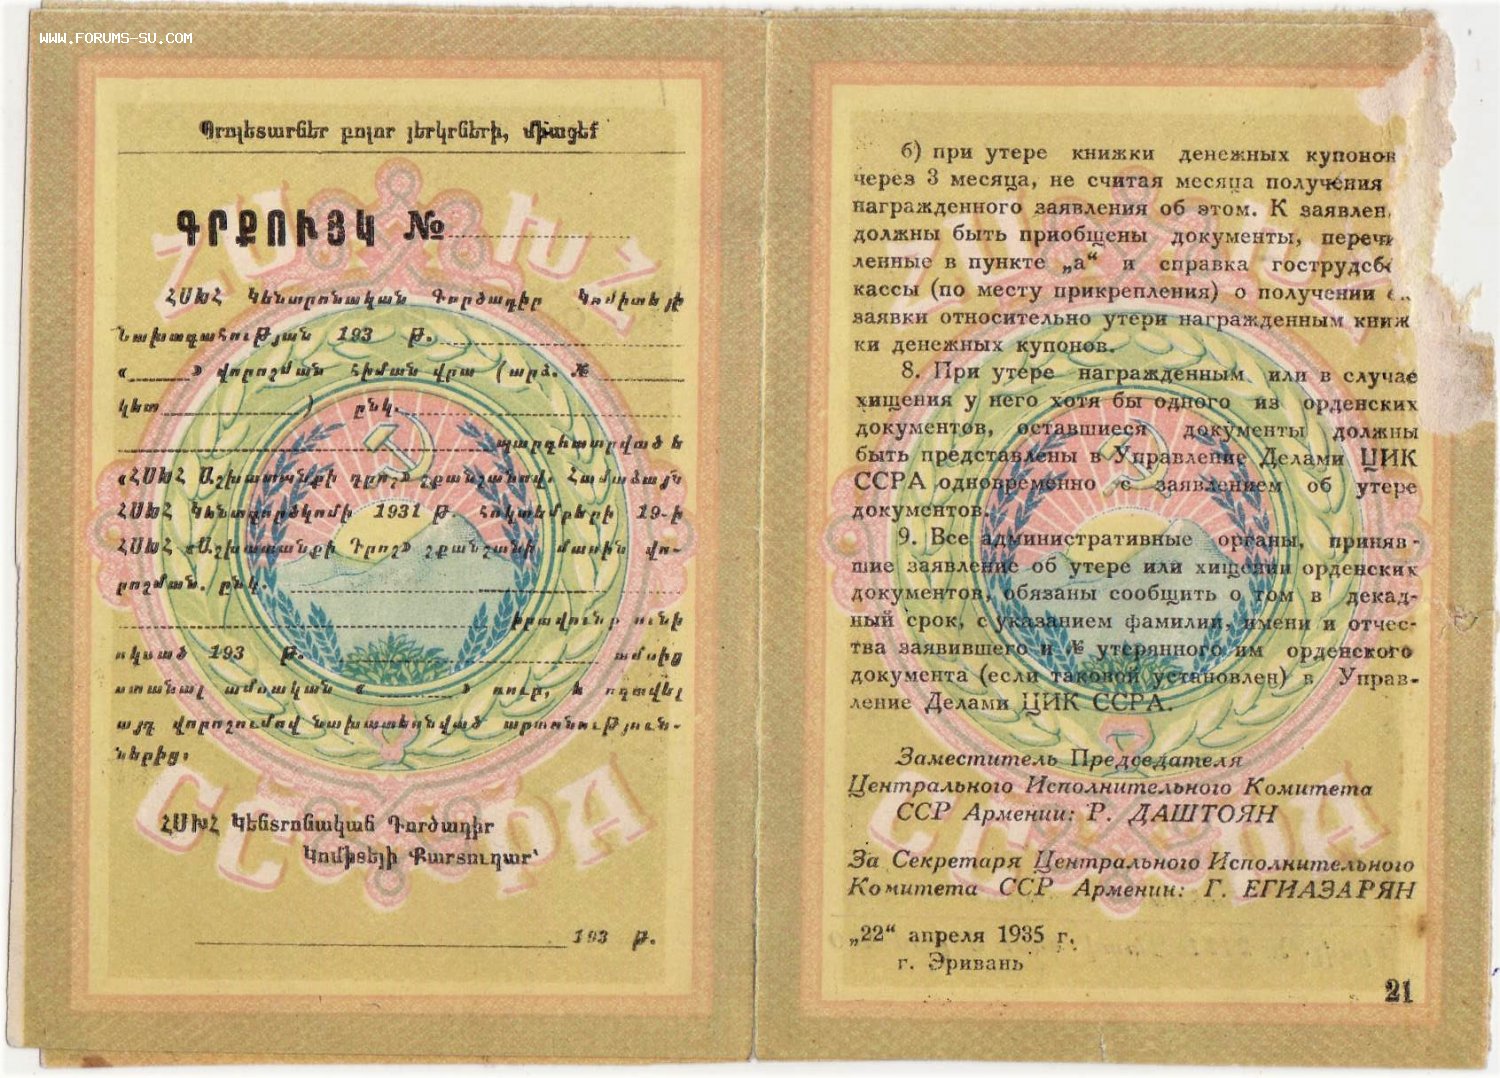 WWW.FORUMS-SU.COM
Պրոլետարներ բոլոր յերկրների, միացեք
ԳՐՔՈՒՅԿ №
ՀՍԽՀ Կենտրոնական Գործադիր Կոմիտեյի
Նախագահության 193 թ.
«  » վորոշման հիման վրա (արձ. №
կետ  ) ընկ.
պարգևատրված և
«ՀՍԽՀ Աշխատանքի դրոշ» շքանշանով. Համաձայն
ՀՍԽՀ Կենտգործկոմի 1931 թ. հոկտեմբերի 19-ի
ՀՍԽՀ «Աշխատանքի Դրոշ» շքանշանի մասին վո-
րոշման. ընկ.
իրավունք ունի
սկսած 193 թ. ամսից
ստանալ ամսական «  » ռուբ, և ոգտվել
այդ վորոշումով նախատեսնված արտոնություն-
ներից։
ՀՍԽՀ Կենտրոնական Գործադիր
Կոմիտեյի Քարտուղար՝
193 թ.
ՀՍԽՀ
ССРА
б) при утере книжки денежных купонов
через 3 месяца, не считая месяца получения
награжденного заявления об этом. К заявлен
должны быть приобщены документы, перечи
ленные в пункте „а“ и справка гострудсб
кассы (по месту прикрепления) о получении
заявки относительно утери награжденным книж
ки денежных купонов.
8. При утере награжденным или в случае
хищения у него хотя бы одного из орденских
документов, оставшиеся документы должны
быть представлены в Управление Делами ЦИК
ССРА одновременно с заявлением об утере
документов.
9. Все административные органы, приняв-
шие заявление об утере или хищении орденских
документов, обязаны сообщить о том в декад-
ный срок, с указанием фамилии, имени и отчес-
тва заявившего и № утерянного им орденского
документа (если таковой установлен) в Управ-
ление Делами ЦИК ССРА.
Заместитель Председателя
Центрального Исполнительного Комитета
ССР Армении: Р. ДАШТОЯН
За Секретаря Центрального Исполнительного
Комитета ССР Арменин: Г. ЕГИАЗАРЯН
„22“ апреля 1935 г.
г. Эривань
21